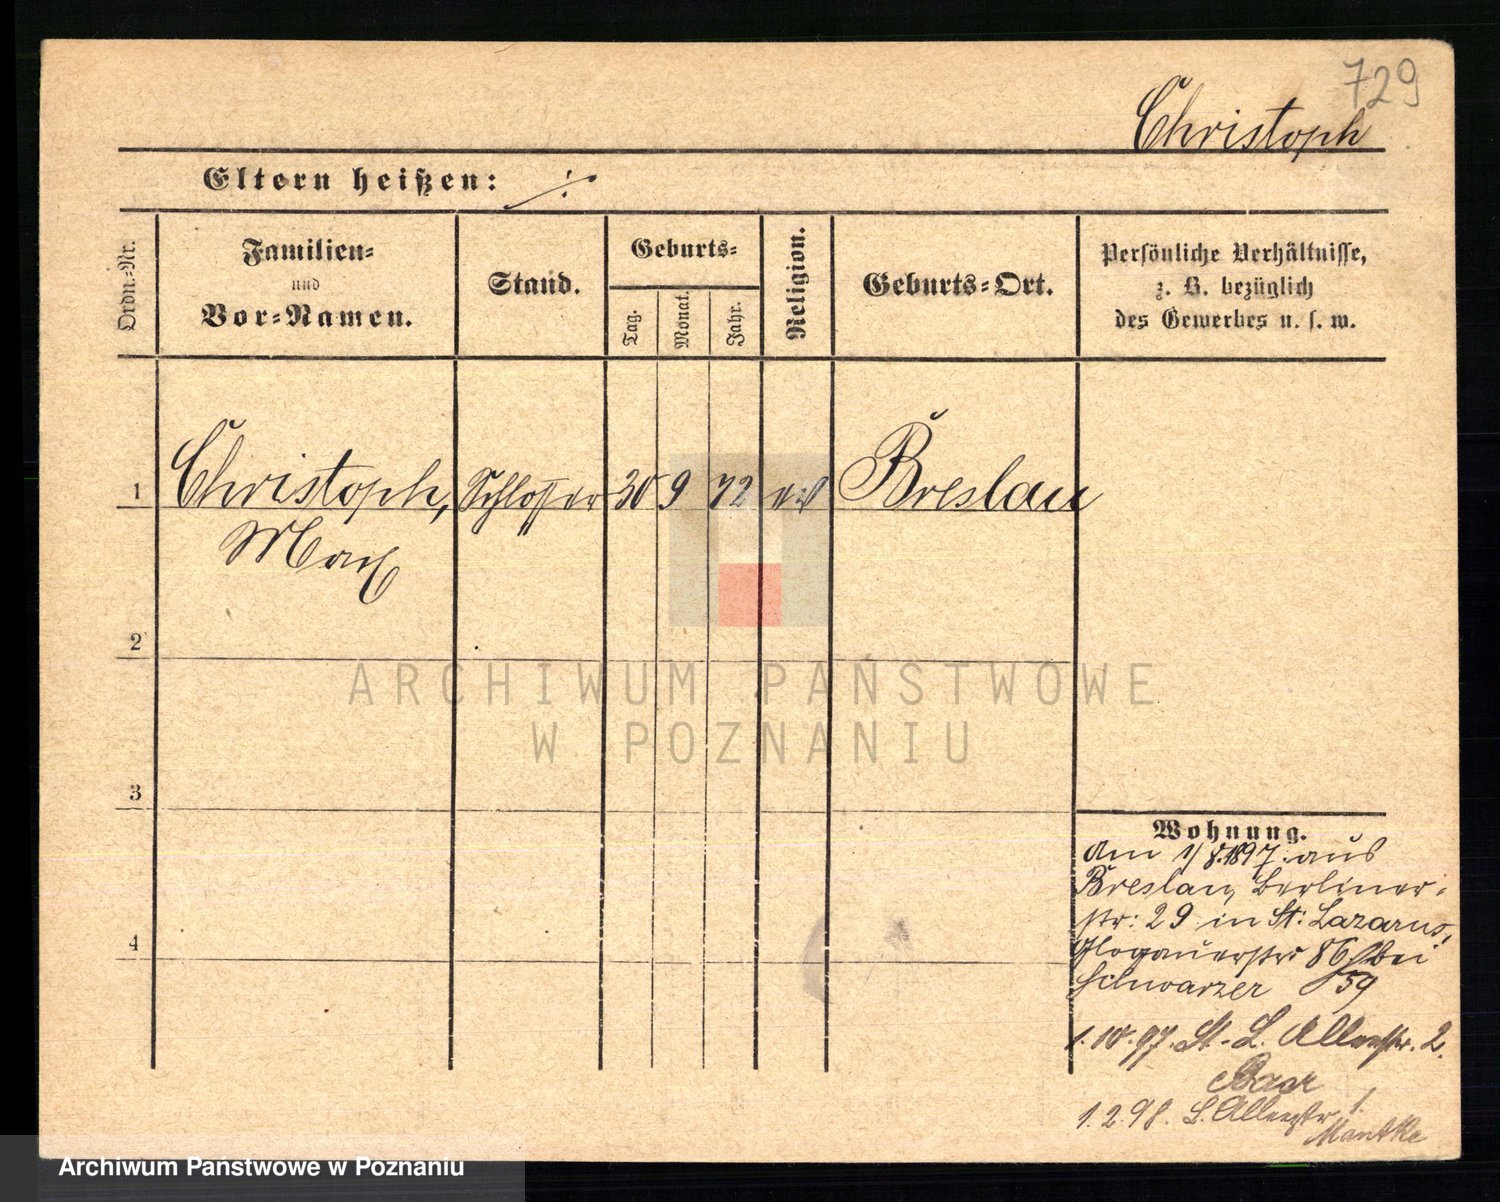 729
Christoph
Eltern heißen: ./.
Ordn.-Nr.
Familien-
und
Vor-Namen.
Stand.
Geburts-
Tag.
Monat.
Jahr.
Religion.
Geburts-Ort.
Persönliche Verhältnisse,
z. B. bezüglich
des Gewerbes u. s. w.
1 Christoph, Schlosser 30 9 72 ev Breslau
Max
2
3
4
Wohnung.
Am 1/8.1897. aus
Breslau, Berliner-
str: 29 in St: Lazarus,
Glogauerstr 86 bei
Schwarzer 59
1.10.97. St. L. Allenstr. 2.
Baar
1.2.98. L. Allenstr 1.
Mantke
ARCHIWUM PAŃSTWOWE
W POZNANIU
Archiwum Państwowe w Poznaniu